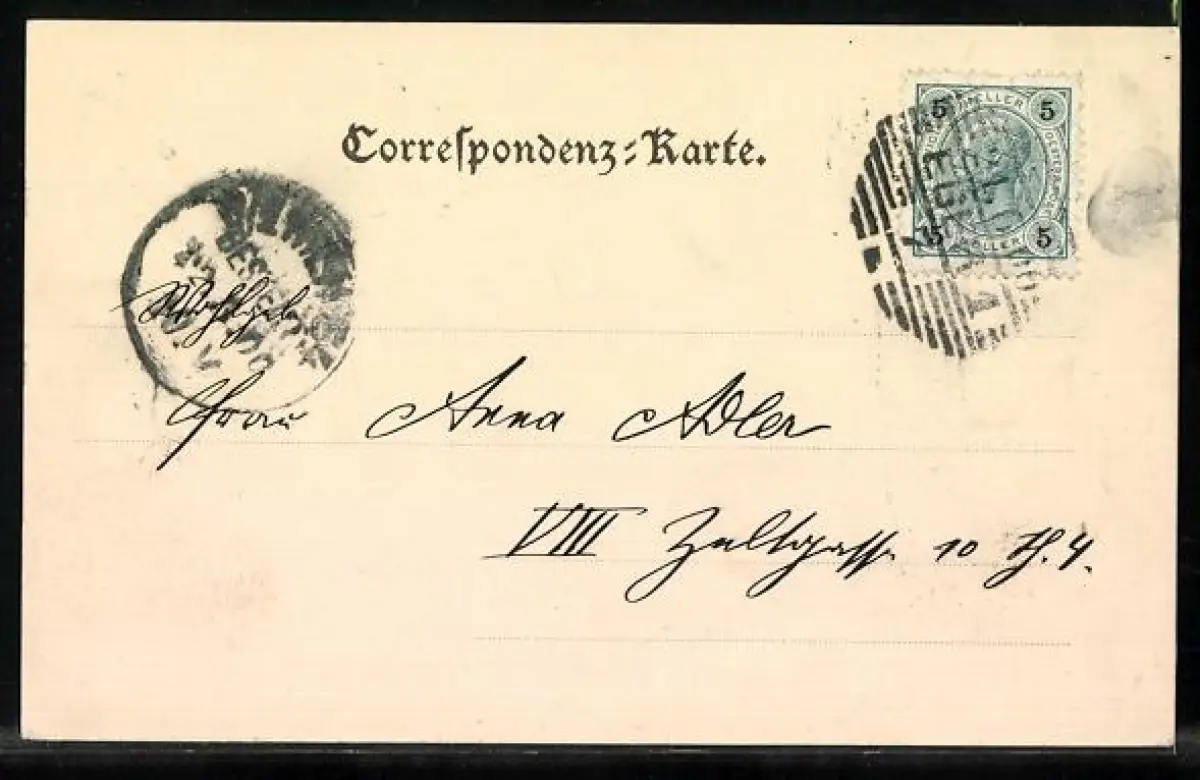 Correspondenz-Karte.
5 HELLER 5
5 HELLER 5
WIEN
BESTELLT
Wohlgeb
Frau Anna Adler
VIII Zeltgasse 10 Th. 4.